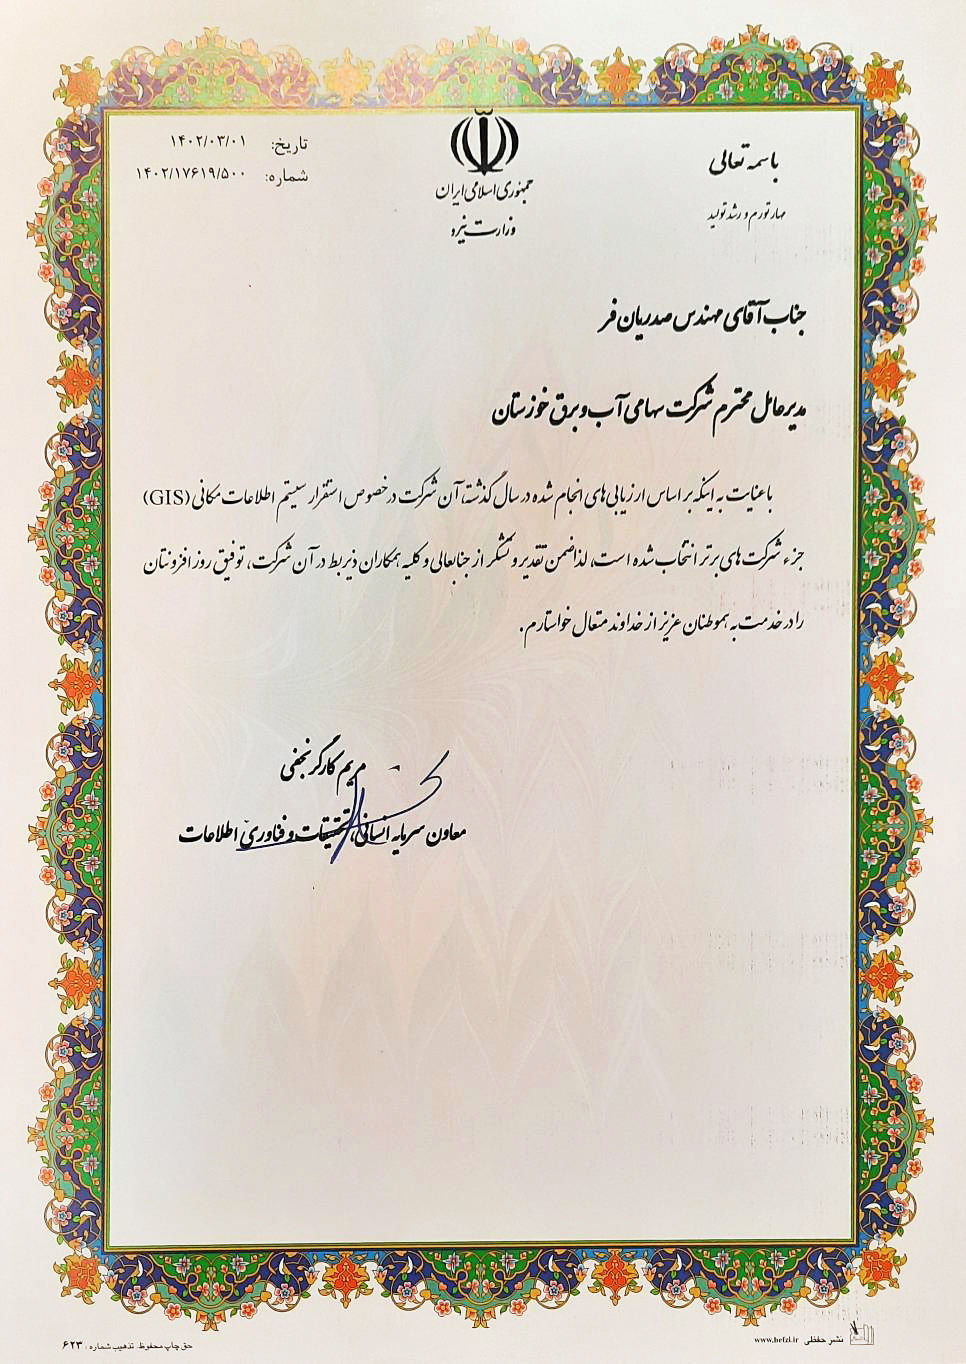 باسمه تعالی
مهار تورم و رشد تولید
جمهوری اسلامی ایران
وزارت نیرو
تاریخ: ۱۴۰۲/۰۳/۰۱
شماره: ۱۴۰۲/۱۷۶۱۹/۵۰۰
جناب آقای مهندس صدریان فر
مدیرعامل محترم شرکت سهامی آب و برق خوزستان
باعنایت به اینکه بر اساس ارزیابی های انجام شده در سال گذشته، آن شرکت در خصوص استقرار سیستم اطلاعات مکانی (GIS)
جزء شرکت های برتر انتخاب شده است، لذا ضمن تقدیر و تشکر از جنابعالی و کلیه همکاران ذیربط در آن شرکت، توفیق روز افزونتان
را در خدمت به هموطنان عزیز از خداوند متعال خواستارم.
مریم کارگر نجفی
معاون سرمایه انسانی، تحقیقات و فناوری اطلاعات
نشر حفظی www.hefzi.ir
حق چاپ محفوظ. تذهیب شماره: ۶۲۳